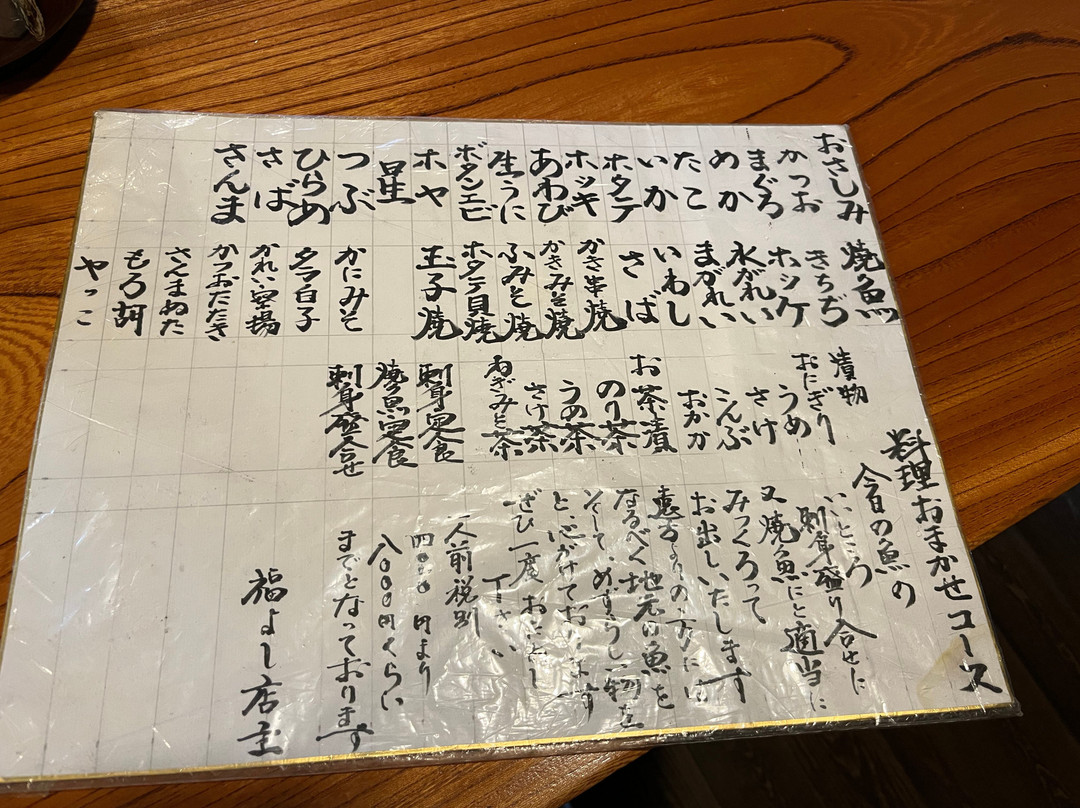 おさしみ
かつお
まぐろ
めか
たこ
いか
ホタテ
ホッキ
あわび
生うに
ボタンエビ
ホヤ
星
つぶ
ひらめ
さば
さんま
焼魚
きちぢ
ホッケ
水がれい
まがれい
いわし
さば
かき串焼
かきみそ焼
ふみそ焼
ホタテ貝焼
玉子焼
かにみそ
タラ白子
かれい唐揚
かつおたたき
さんまぬた
もろ
やっこ
漬物
おにぎり
うめ
さけ
こんぶ
おかか
お茶漬
のり茶
うめ茶
さけ茶
ねぎみそ茶
刺身定食
焼魚定食
刺身盛合せ
料理おまかせコース
今日の魚の
いいところ
刺身盛り合せに
又焼魚にと適当に
みつくろって
お出しいたします
遠方よりの方には
なるべく地元の魚を
そして めずらしい物を
と、心がけております
ぜひ一度 おためし
下さい
一人前税別
四000円より
八000円くらい
までとなっております
福よし店主